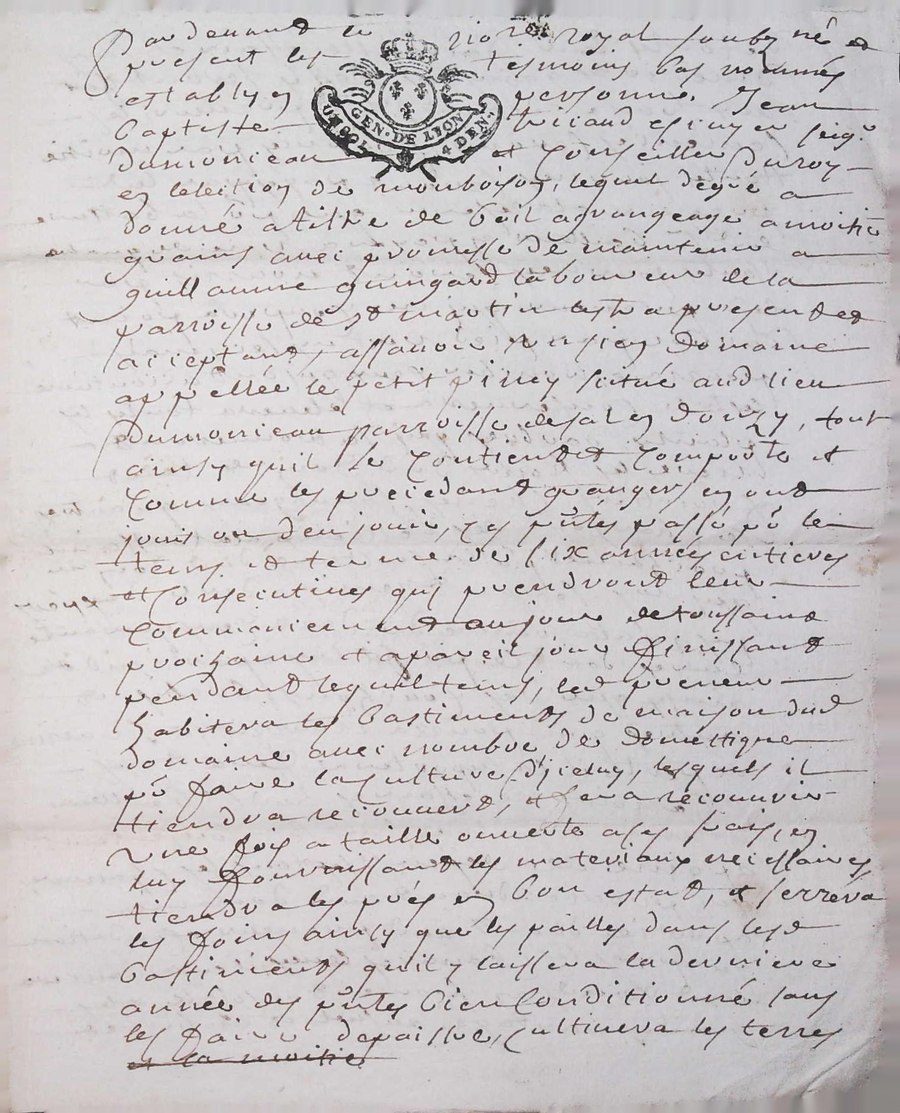 Pardevant le no.re royal soubz.né et
present les tesmoins bas nommés
estably en personne Jean
Baptiste escuyer seig.r
dumonceau et Conseiller du roy
en lelection de montbrison, lequel degré a
donné a tiltre de bail a grangeage a moitié
grains avec promesse de maintenir a
guillaume guingard laboureur de la
parroisse de st martin lestra present et
acceptant, assavoir un sien domaine
appellée le petit piney situé aud lieu
dumonceau parroisse de salt en donzy, tout
ainsy quil se contient et comporte et
comme les precedant grangers en ont
jouis ou deu jouir, ces p.ntes passé p.r le
tems et terme de six années entieres
et consecutives qui prendront leur
commancement au jour de toussaint
prochaine et a pareil jour finissant
pendant lequel tems, led preneur
habitera les bastiments de maison dud
domaine avec nombre de domestique
p.r faire la culture d'iceluy, lesquels il
tiendra recouvert, et fera recouvrir
une fois a taille ouverte a ses frais, en
luy fournissant les materiaux necessaires
tiendra les prés en bon estat, et serrera
les foins ainsy que les pailles dans lesd
bastiments quil y laissera la derniere
année des p.ntes bien conditionné sans
les faire depaistre, cultivera les terres
et la moitié
GEN. DE LYON
4 DEN.